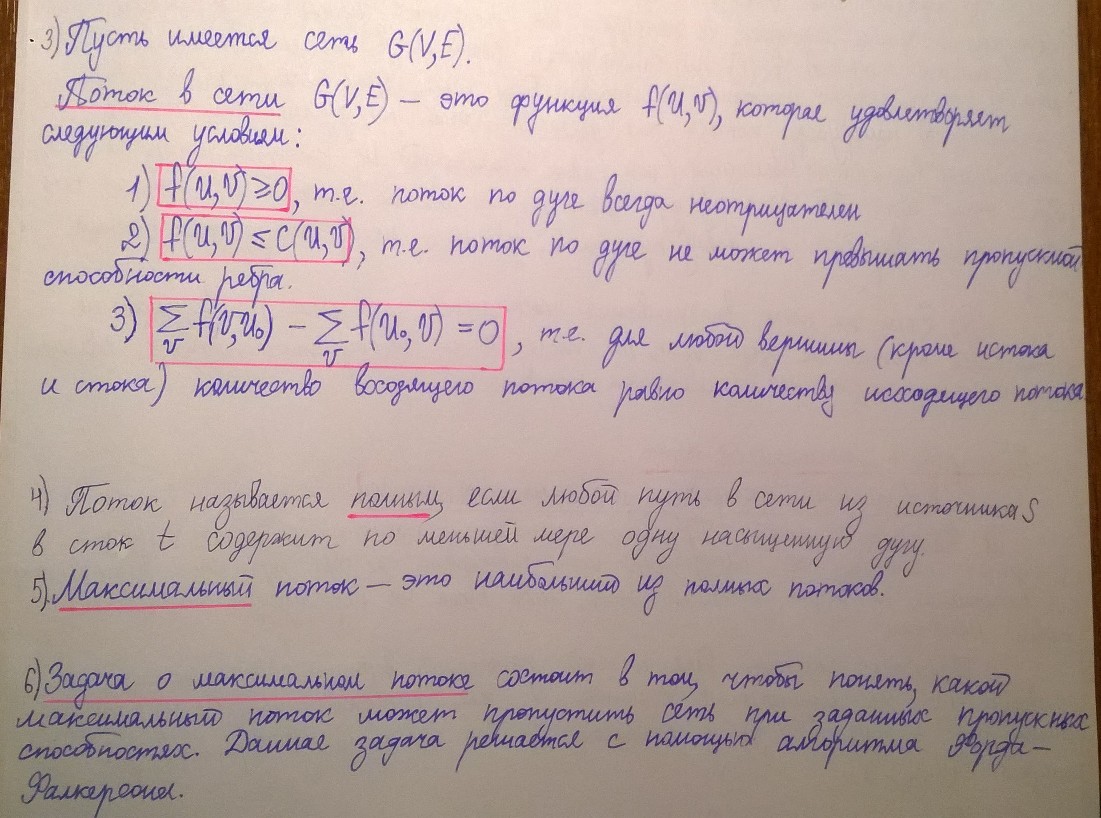 3) Пусть имеется сеть G(V,E).
Поток в сети G(V,E) — это функция f(u,v), которая удовлетворяет
следующим условиям:
1) f(u,v)≥0, т.е. поток по дуге всегда неотрицателен
2) f(u,v)≤c(u,v), т.е. поток по дуге не может превышать пропускной
способности ребра.
3) ∑_v f(v,u₀) − ∑_v f(u₀,v) = 0, т.е. для любой вершины (кроме истока
и стока) количество входящего потока равно количеству исходящего потока
4) Поток называется полным, если любой путь в сети из источника s
в сток t содержит по меньшей мере одну насыщенную дугу.
5) Максимальный поток — это наибольший из полных потоков.
6) Задача о максимальном потоке состоит в том, чтобы понять, какой
максимальный поток может пропустить сеть при заданных пропускных
способностях. Данная задача решается с помощью алгоритма Форда—
Фалкерсона.